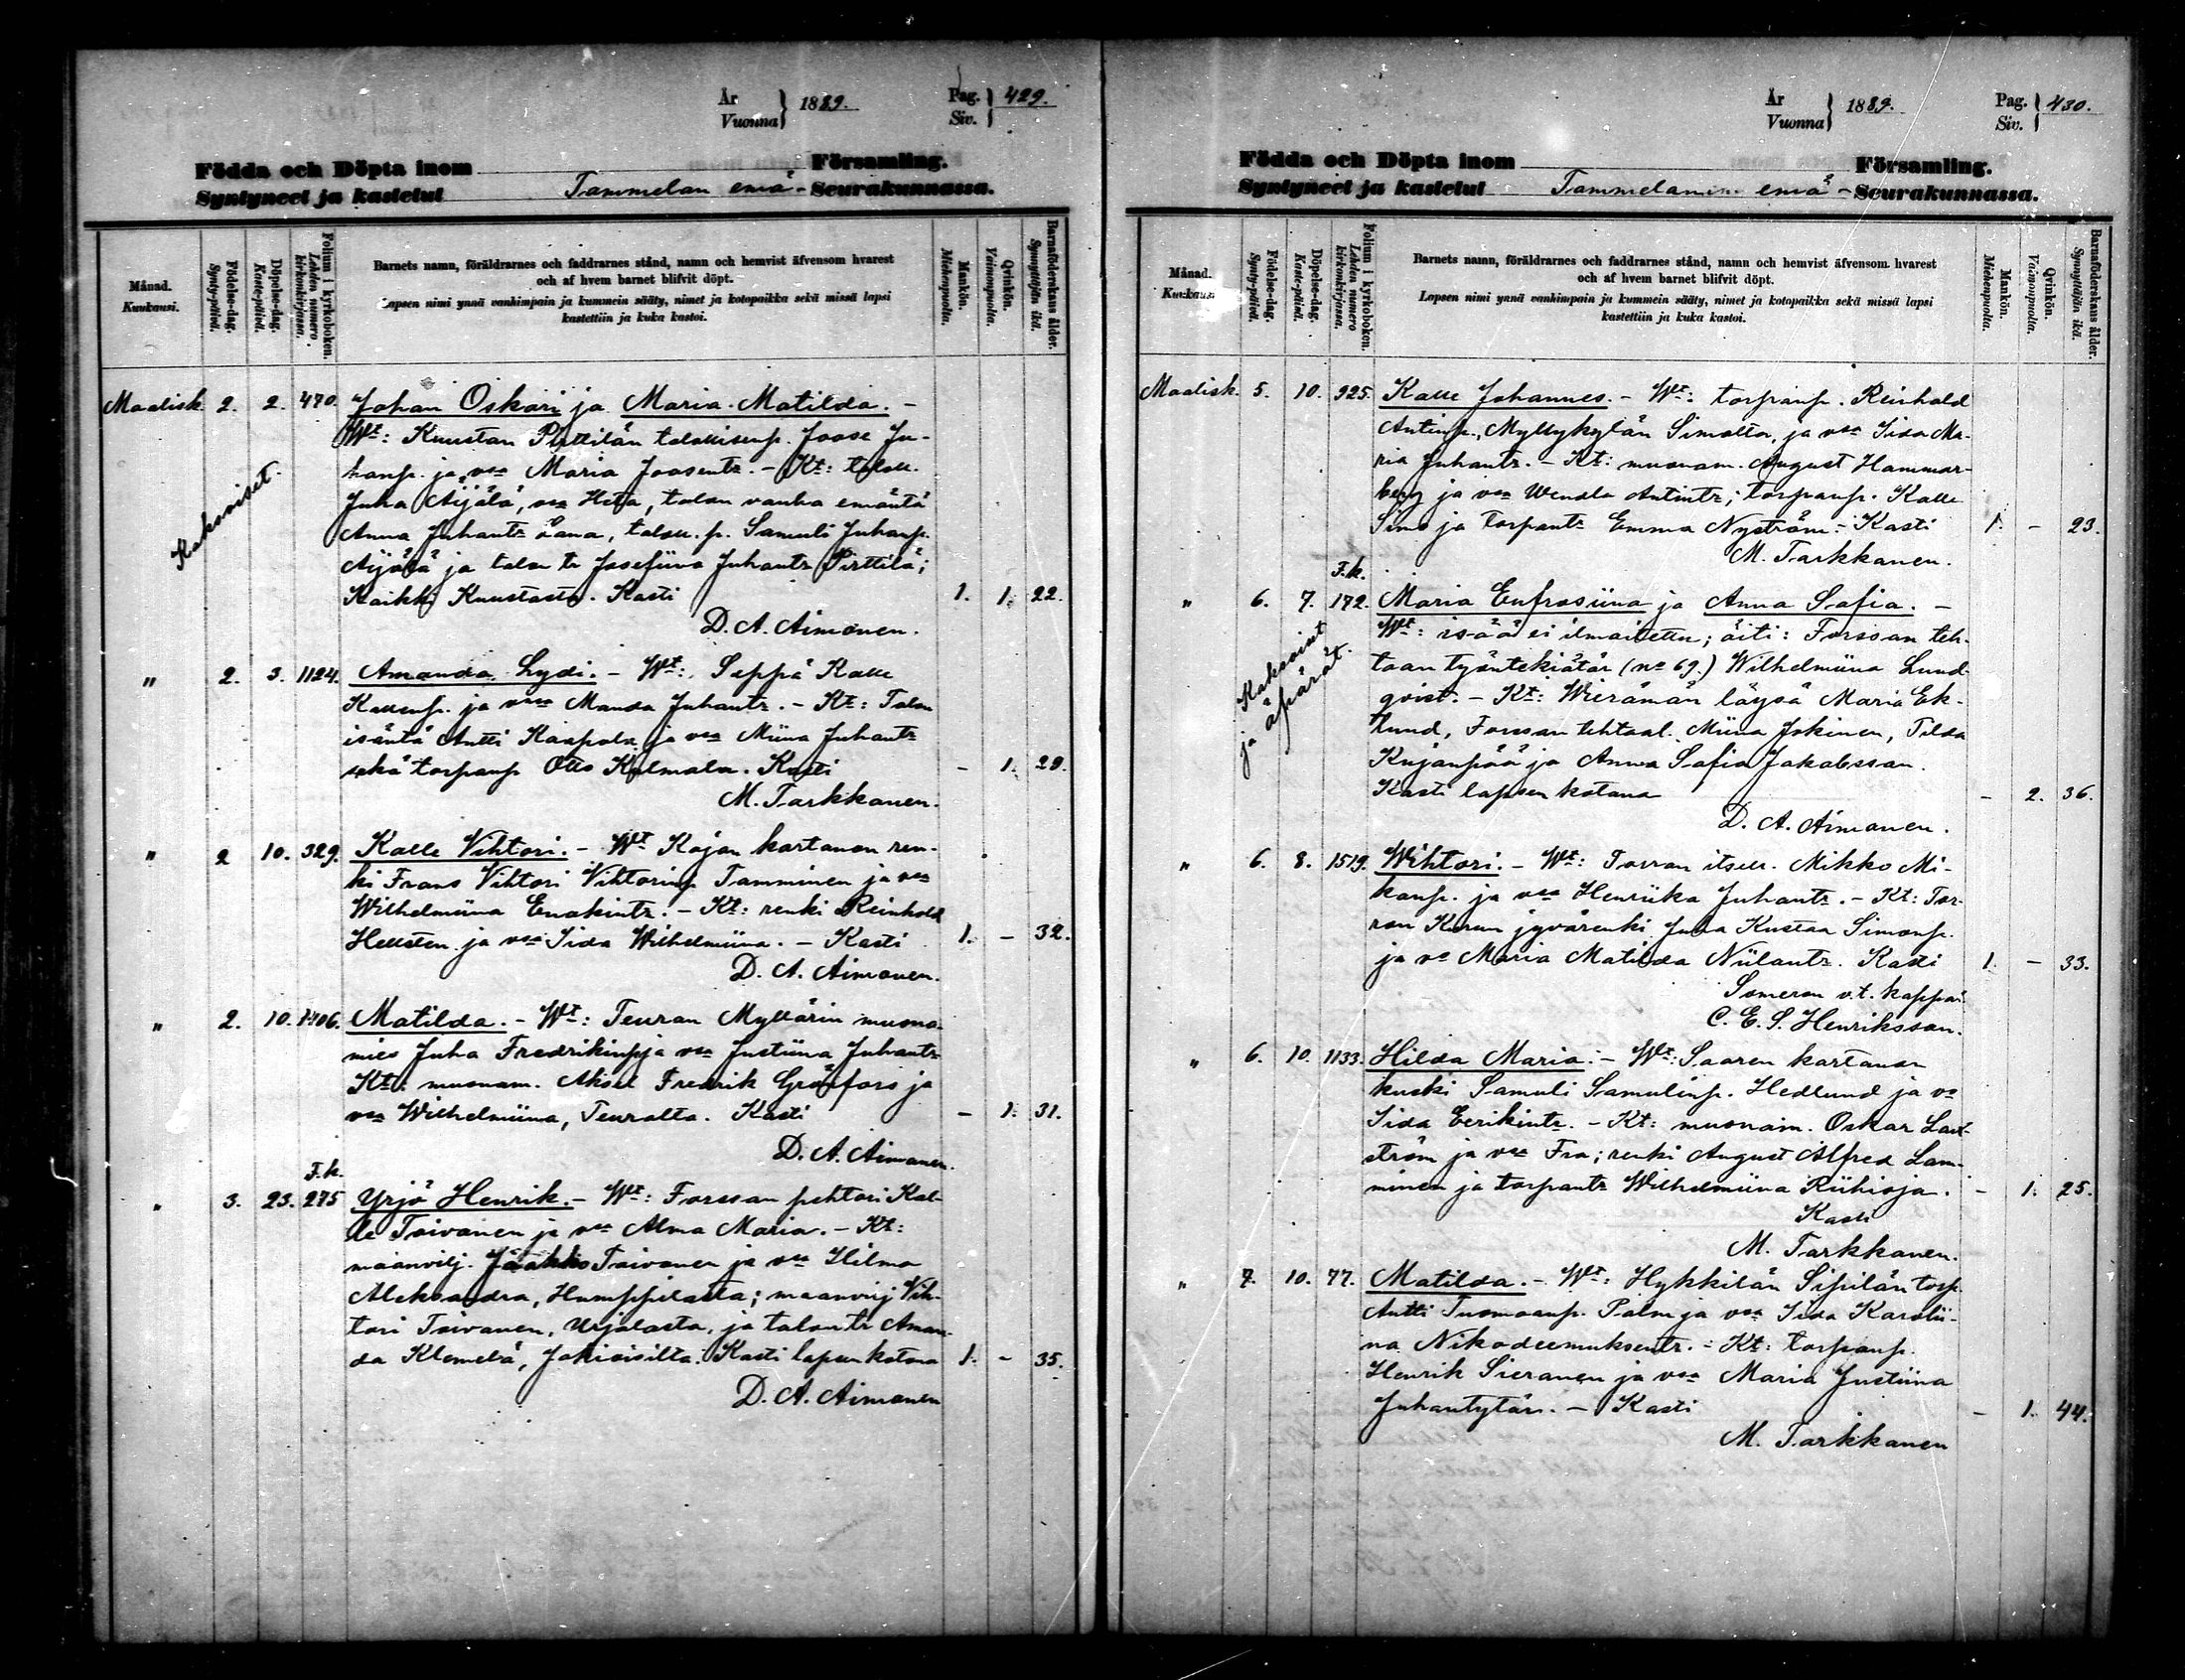 År
Vuonna } 1889. Pag.
Siv. } 429.
Födda och Döpta inom Församling.
Syntyneet ja kastetut Tammelan emä- Seurakunnassa.
Månad.
Kuukausi.
Födelse-dag.
Synty-päivä.
Döpelse-dag.
Kaste-päivä.
Folium i kyrkoboken.
Lehden numero kirkonkirjassa.
Barnets namn, föräldrarnes och faddrarnes stånd, namn och hemvist äfvensom hvarest
och af hvem barnet blifvit döpt.
Lapsen nimi ynnä vanhimpain ja kummein sääty, nimet ja kotopaikka sekä missä lapsi
kastettiin ja kuka kastoi.
Mankön.
Miehenpuolta.
Qvinkön.
Vaimonpuolta.
Barnaföderskans ålder.
Synnyttäjän ikä.
Maalisk. 2. 2. 470. Johan Oskari ja Maria Matilda. –
Wt: Kuustan Pirttilän talollisenp. Joose Ju-
hanp. ja vaa Maria Joosentr. – Kt: taloll.
Juha Äijälä, vaa Heta, talon vanha emäntä
Anna Juhantr Eana, taloll. p. Samuli Juhanp.
Äijälä ja talon tr Josefiina Juhantr Pirttilä;
Kaikki Kuustasta. Kasti 1. 1. 22.
D. A. Aimonen.
Kaksoiset.
" 2. 3. 1124. Amanda Lydi. – Wt: Seppä Kalle
Kallenp. ja vaa Manda Juhantr. – Kt: Talon
isäntä Antti Kaapola ja vaa Miina Juhantr
sekä torpanp Otto Kulmala. Kasti – 1. 29.
M. Tarkkanen.
" 2 10. 329. Kalle Vihtori. – Wt Kojon kartanon ren-
ki Frans Vihtori Vihtorinp. Tamminen ja vaa
Wilhelmiina Enokintr. – Kt: renki Reinhold
Hellsten ja vaa Iida Wilhelmiina. – Kasti 1. – 32.
D. A. Aimonen.
" 2. 10. 1406. Matilda. – Wt: Teuran Myllärin muona-
mies Juha Fredrikinp ja vaa Justiina Juhantr
Kt: muonam. Aksel Fredrik Gränfors ja
vaa Wilhelmiina, Teuralta. Kasti – 1. 31.
D. A. Aimonen.
F.k.
" 3. 23. 275 Yrjö Henrik. – Wt: Forssan pehtori Kal-
le Toivonen ja vaa Alma Maria. – Kt:
maanvilj. Jaakko Toivonen ja vaa Hilma
Aleksandra, Humppilasta; maanvilj Vih-
tori Toivonen, Urjalasta, ja talon tr Aman-
da Klemelä, Jokioisilta. Kasti lapsen kotona 1. – 35.
D. A. Aimonen
År
Vuonna } 1889. Pag.
Siv. } 430.
Födda och Döpta inom Församling.
Syntyneet ja kastetut Tammelan emä- Seurakunnassa.
Månad.
Kuukausi.
Födelse-dag.
Synty-päivä.
Döpelse-dag.
Kaste-päivä.
Folium i kyrkoboken.
Lehden numero kirkonkirjassa.
Barnets namn, föräldrarnes och faddrarnes stånd, namn och hemvist äfvensom hvarest
och af hvem barnet blifvit döpt.
Lapsen nimi ynnä vanhimpain ja kummein sääty, nimet ja kotopaikka sekä missä lapsi
kastettiin ja kuka kastoi.
Mankön.
Miehenpuolta.
Qvinkön.
Vaimonpuolta.
Barnaföderskans ålder.
Synnyttäjän ikä.
Maalisk. 5. 10. 925. Kalle Johannes. – Wt: torpanp. Reinhold
Antinp., Myllykylän Simolta, ja vaa Iida Ma-
ria Juhantr. – Kt: muonam. August Hammar-
berg ja vaa Wendla Antintr; torpanp. Kalle
Simo ja torpantr Emma Nyström. – Kasti 1. – 23.
M. Tarkkanen.
F.k.
" 6. 7. 172. Maria Eufrosiina ja Anna Sofia. –
Wt: isää ei ilmoitettu; äiti: Forssan teh-
taan työntekiätär (no 69.) Wilhelmiina Lund
qvist. – Kt: Wieremän läysä Maria Ek-
lund, Forssan tehtaal. Miina Jokinen, Tilda
Kujanpää ja Anna Sofia Jakobsson.
Kasti lapsen kotona – 2. 36.
D. A. Aimonen.
Kaksoiset
ja äpärät.
" 6. 8. 1519. Wihtori. – Wt: Torron itsell. Mikko Mi-
konp. ja vaa Henriika Juhantr. – Kt: Tor-
ron jyvärenki Juha Kustaa Simonp.
ja va Maria Matilda Niilantr. Kasti 1. – 33.
Someron v.t. kappal.
C. E. S. Henriksson.
" 6. 10. 1133. Hilda Maria. – Wt: Saaren kartanon
kuski Samuli Samulinp. Hedlund ja va
Iida Eerikintr. – Kt: muonam. Oskar
ström ja vaa Fia; renki August Alfred Lam-
minen ja torpantr Wilhelmiina Riihioja. – 1. 25.
Kasti
M. Tarkkanen.
" 7. 10. 77. Matilda. – Wt: Hykkilän Sipilän torp.
Antti Tuomaanp. Palm ja vaa Iida Karolii-
na Nikodeemuksentr. – Kt: torpanp.
Henrik Sieranen ja vaa Maria Justiina
Juhantytär. – Kasti – 1. 44.
M. Tarkkanen